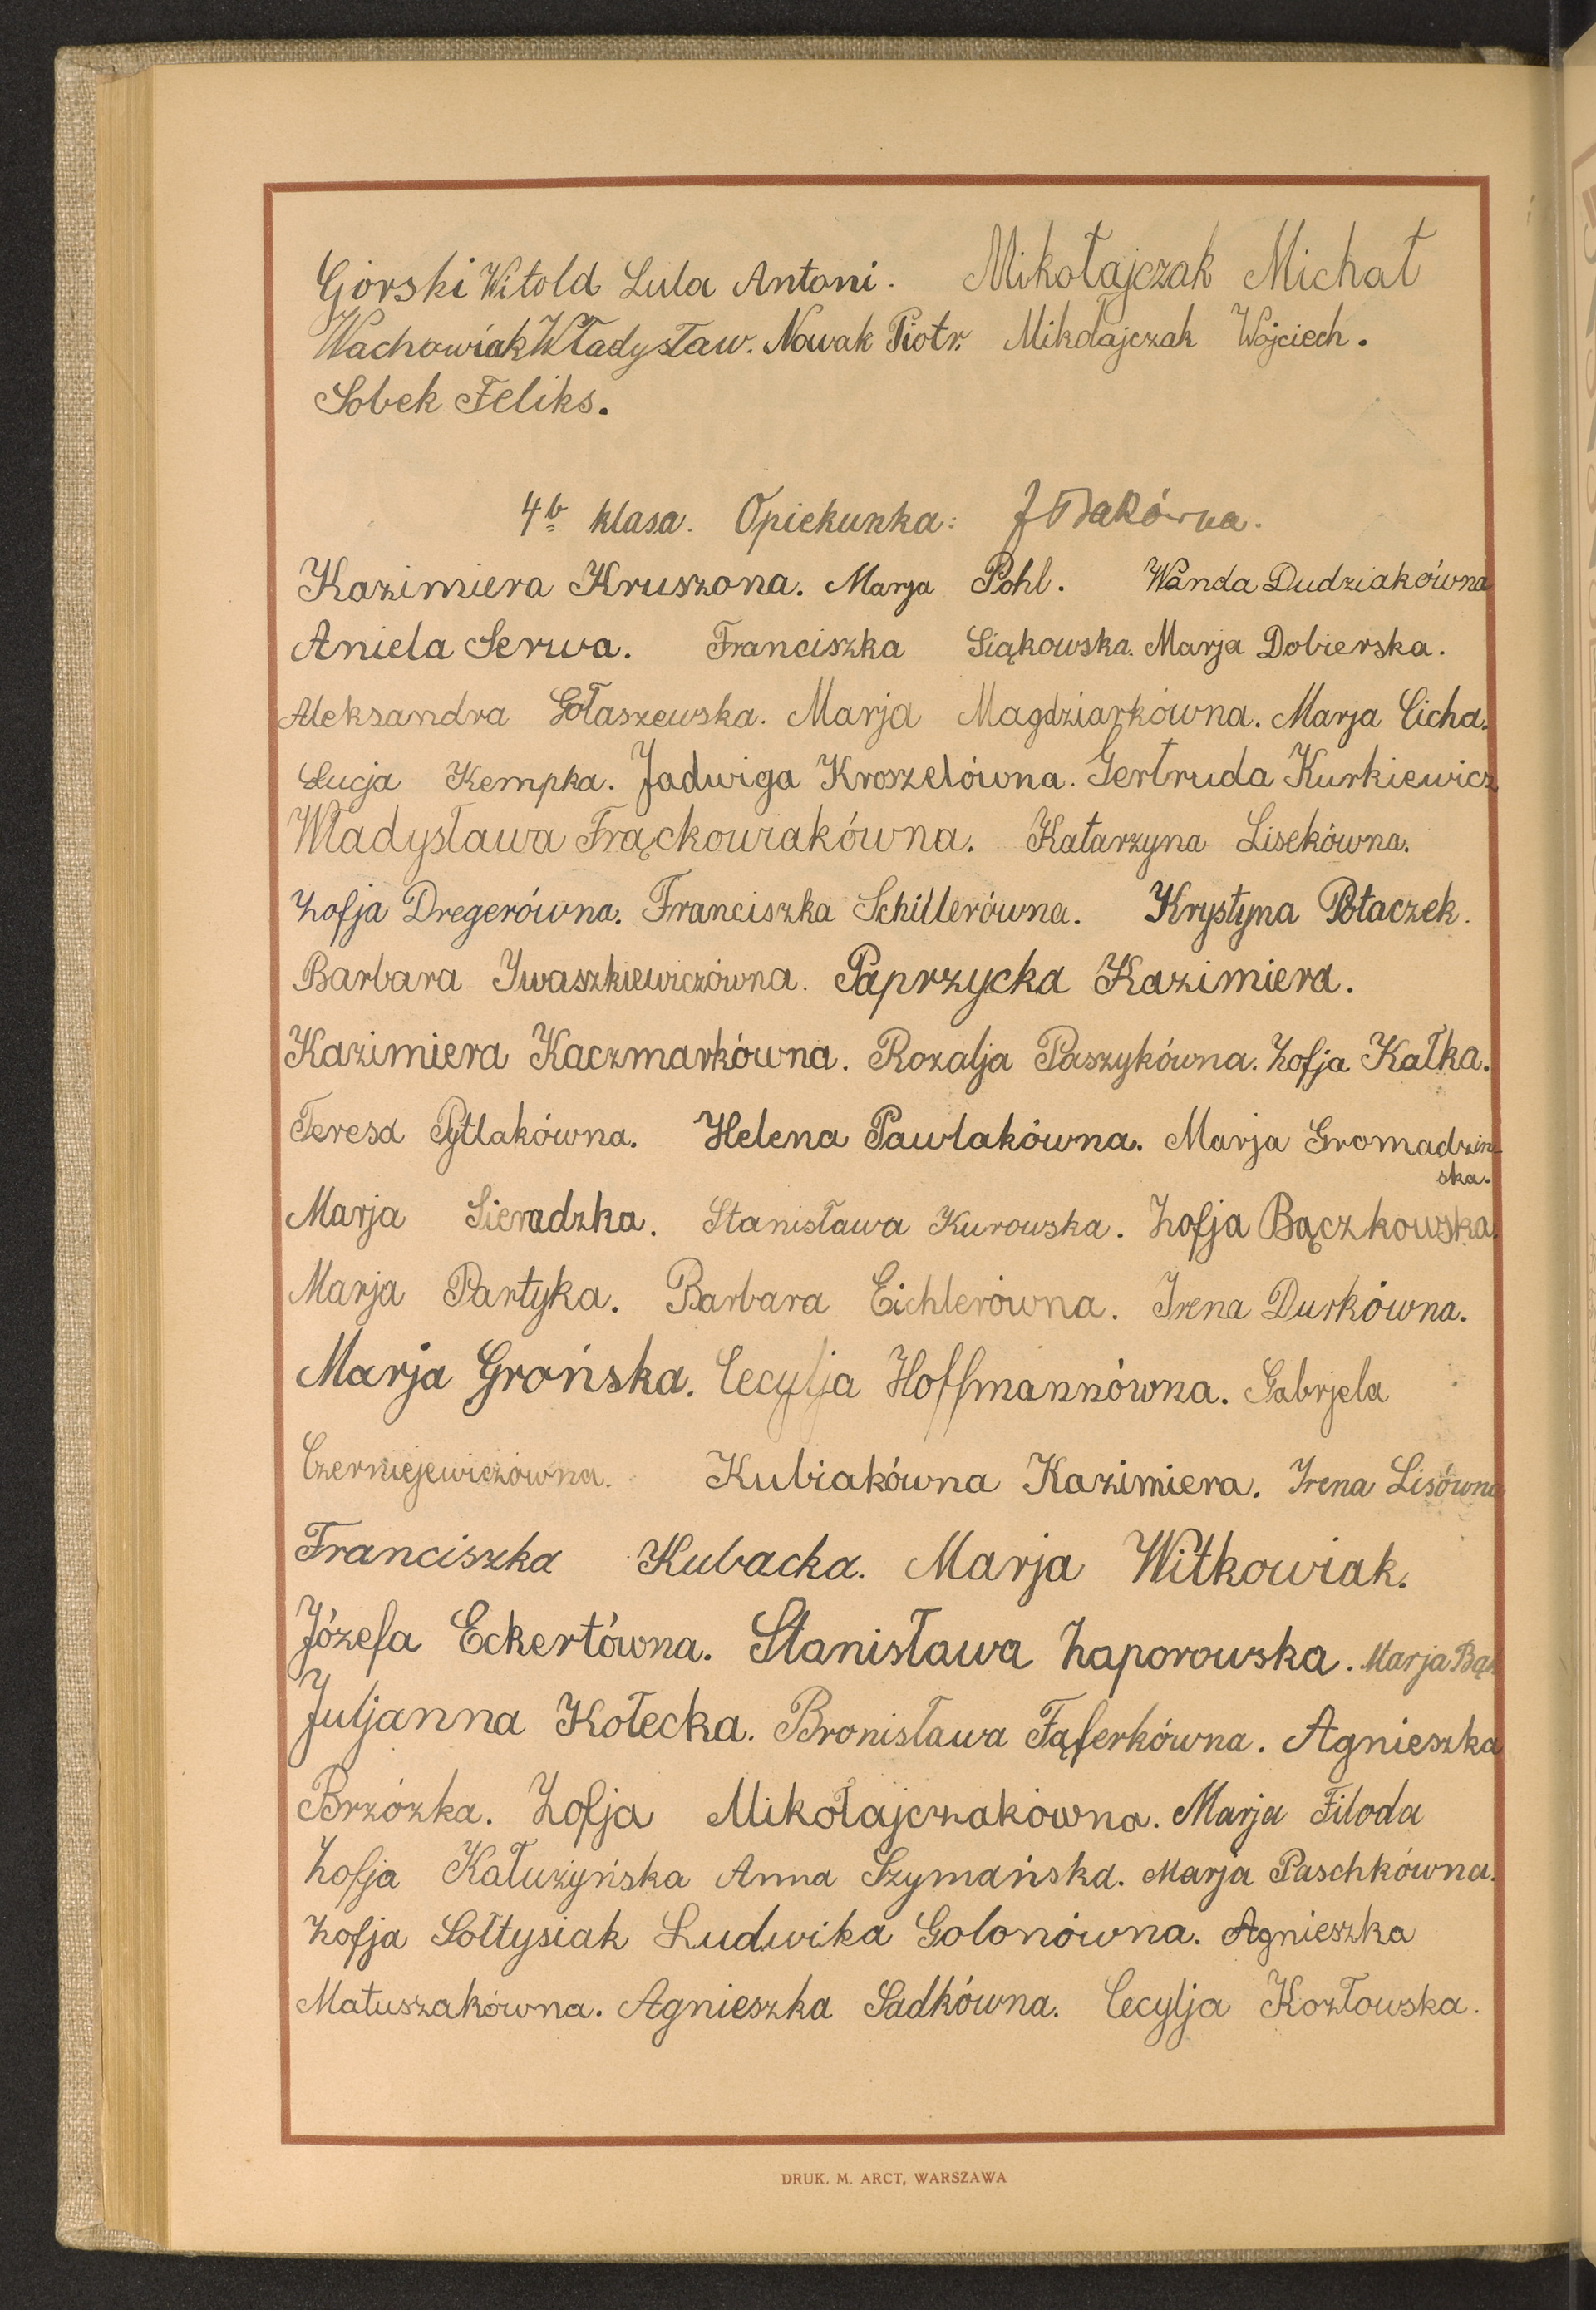 Górski Witold Lula Antoni. Mikołajczak Michał
Wachowiak Władysław. Nowak Piotr. Mikołajczak Wojciech.
Sobek Feliks.
4b klasa. Opiekunka:
Kazimiera Kruszona. Marja Pohl. Wanda Dudziakówna
Aniela Serwa. Franciszka Siąkowska. Marja Dobierska.
Aleksandra Gołaszewska. Marja Magdziarkówna. Marja Cicha.
Łucja Kempka. Jadwiga Kroszelówna. Gertruda Kurkiewicz
Władysława Frąckowiakówna. Katarzyna Lisekówna.
Zofja Dregerówna. Franciszka Schillerówna. Krystyna Potaczek.
Barbara Iwaszkiewiczówna. Paprzycka Kazimiera.
Kazimiera Kaczmarkówna. Rozalja Paszykówna. Zofja Kałka.
Teresa Pytlakówna. Helena Pawlakówna. Marja Gromadzin-
ska.
Marja Sieradzka. Stanisława Kurowska. Zofja Bączkowska.
Marja Partyka. Barbara Eichlerówna. Irena Durkówna.
Marja Grońska. Cecylja Hoffmannówna. Gabrjela
Czerniejewiczówna. Kubiakówna Kazimiera. Irena Lisówna
Franciszka Kubacka. Marja Witkowiak.
Józefa Eckertówna. Stanisława Zaporowska. Marja Bąk
Juljanna Kołecka. Bronisława Fąferkówna. Agnieszka
Brzózka. Zofja Mikołajczakówna. Marja Filoda
Zofja Kałużyńska Anna Szymańska. Marja Paschkówna.
Zofja Sołtysiak Ludwika Golonówna. Agnieszka
Matuszakówna. Agnieszka Sadkówna. Cecylja Kozłowska.
DRUK. M. ARCT, WARSZAWA